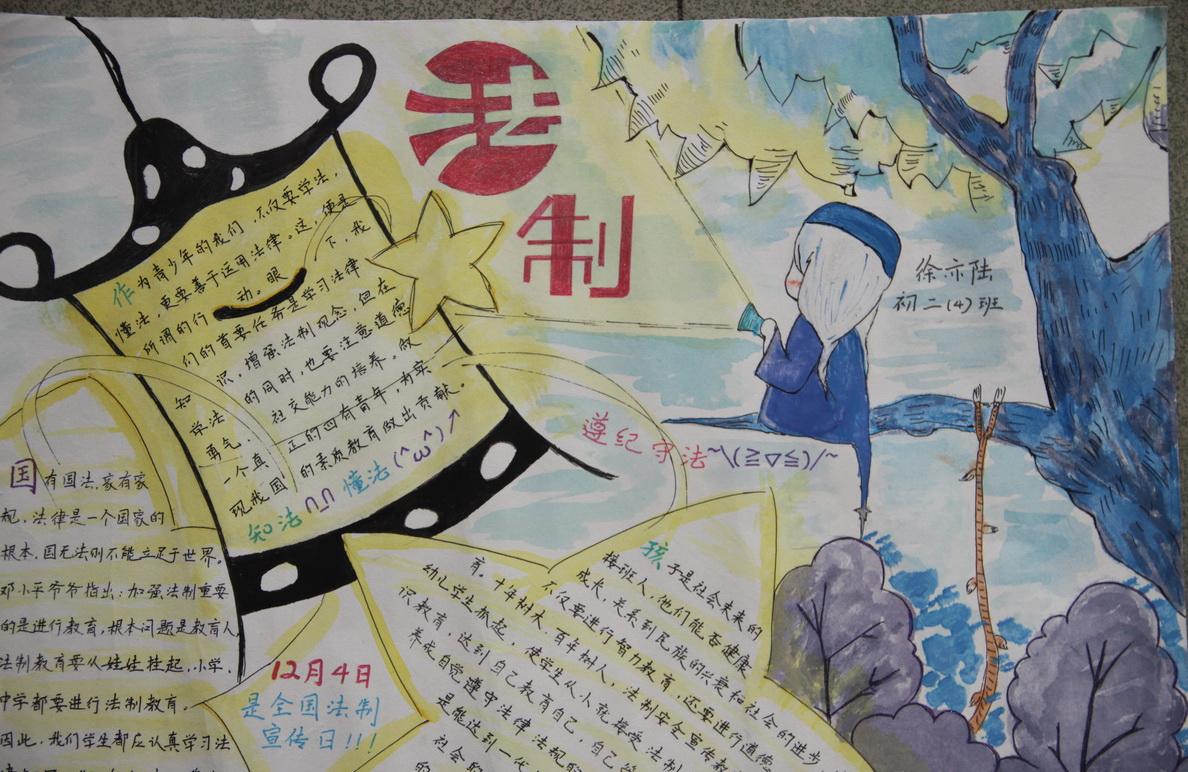 法
制
作为青少年的我们,不仅要学法,
懂法,更要善于运用法律。这,便是
所谓的行动。眼下,我
们的首要任务是学习法律
知识,增强法制观念,但在
学法的同时,也要注意道德
勇气,社交能力的培养。做
一个真正的四有青年,为实
现我国的素质教育做出贡献。
知法 懂法(^ω^)↗
徐亦陆
初二(4)班
遵纪守法~\(≧▽≦)/~
国有国法,家有家
规,法律是一个国家的
根本,国无法则不能立足于世界。
邓小平爷爷指出:加强法制重要
的是进行教育,根本问题是教育人
法制教育要从娃娃抓起,小学、
中学都要进行法制教育。
因此,我们学生都应认真学习法
12月4日
是全国法制
宣传日!!!
孩子是社会未来的
接班人,他们能否健康
成长,关系到民族的兴衰和社会的进步
不仅要进行智力教育,还要进行道德
育。十年树木,百年树人,法制安全宣传教
幼儿学生抓起,使学生从小就接受法制
识教育,达到自己教育自己,自己
养成自觉遵守法律法规的
是能达到一代
社会的